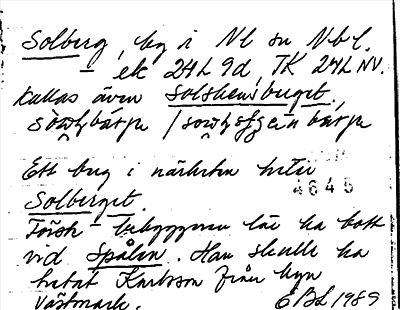 Solberg, by i Nl sn Vbl.
– ek 24L 9d, TK 24L NV.
Kallas även Solskensberget,
Ett berg i närheten heter
4645
Solberget.
Förste bebyggaren lär ha bott
vid Spålen. Han skulle ha
hetat Karlsson från byn
Västmark. EBL 1989